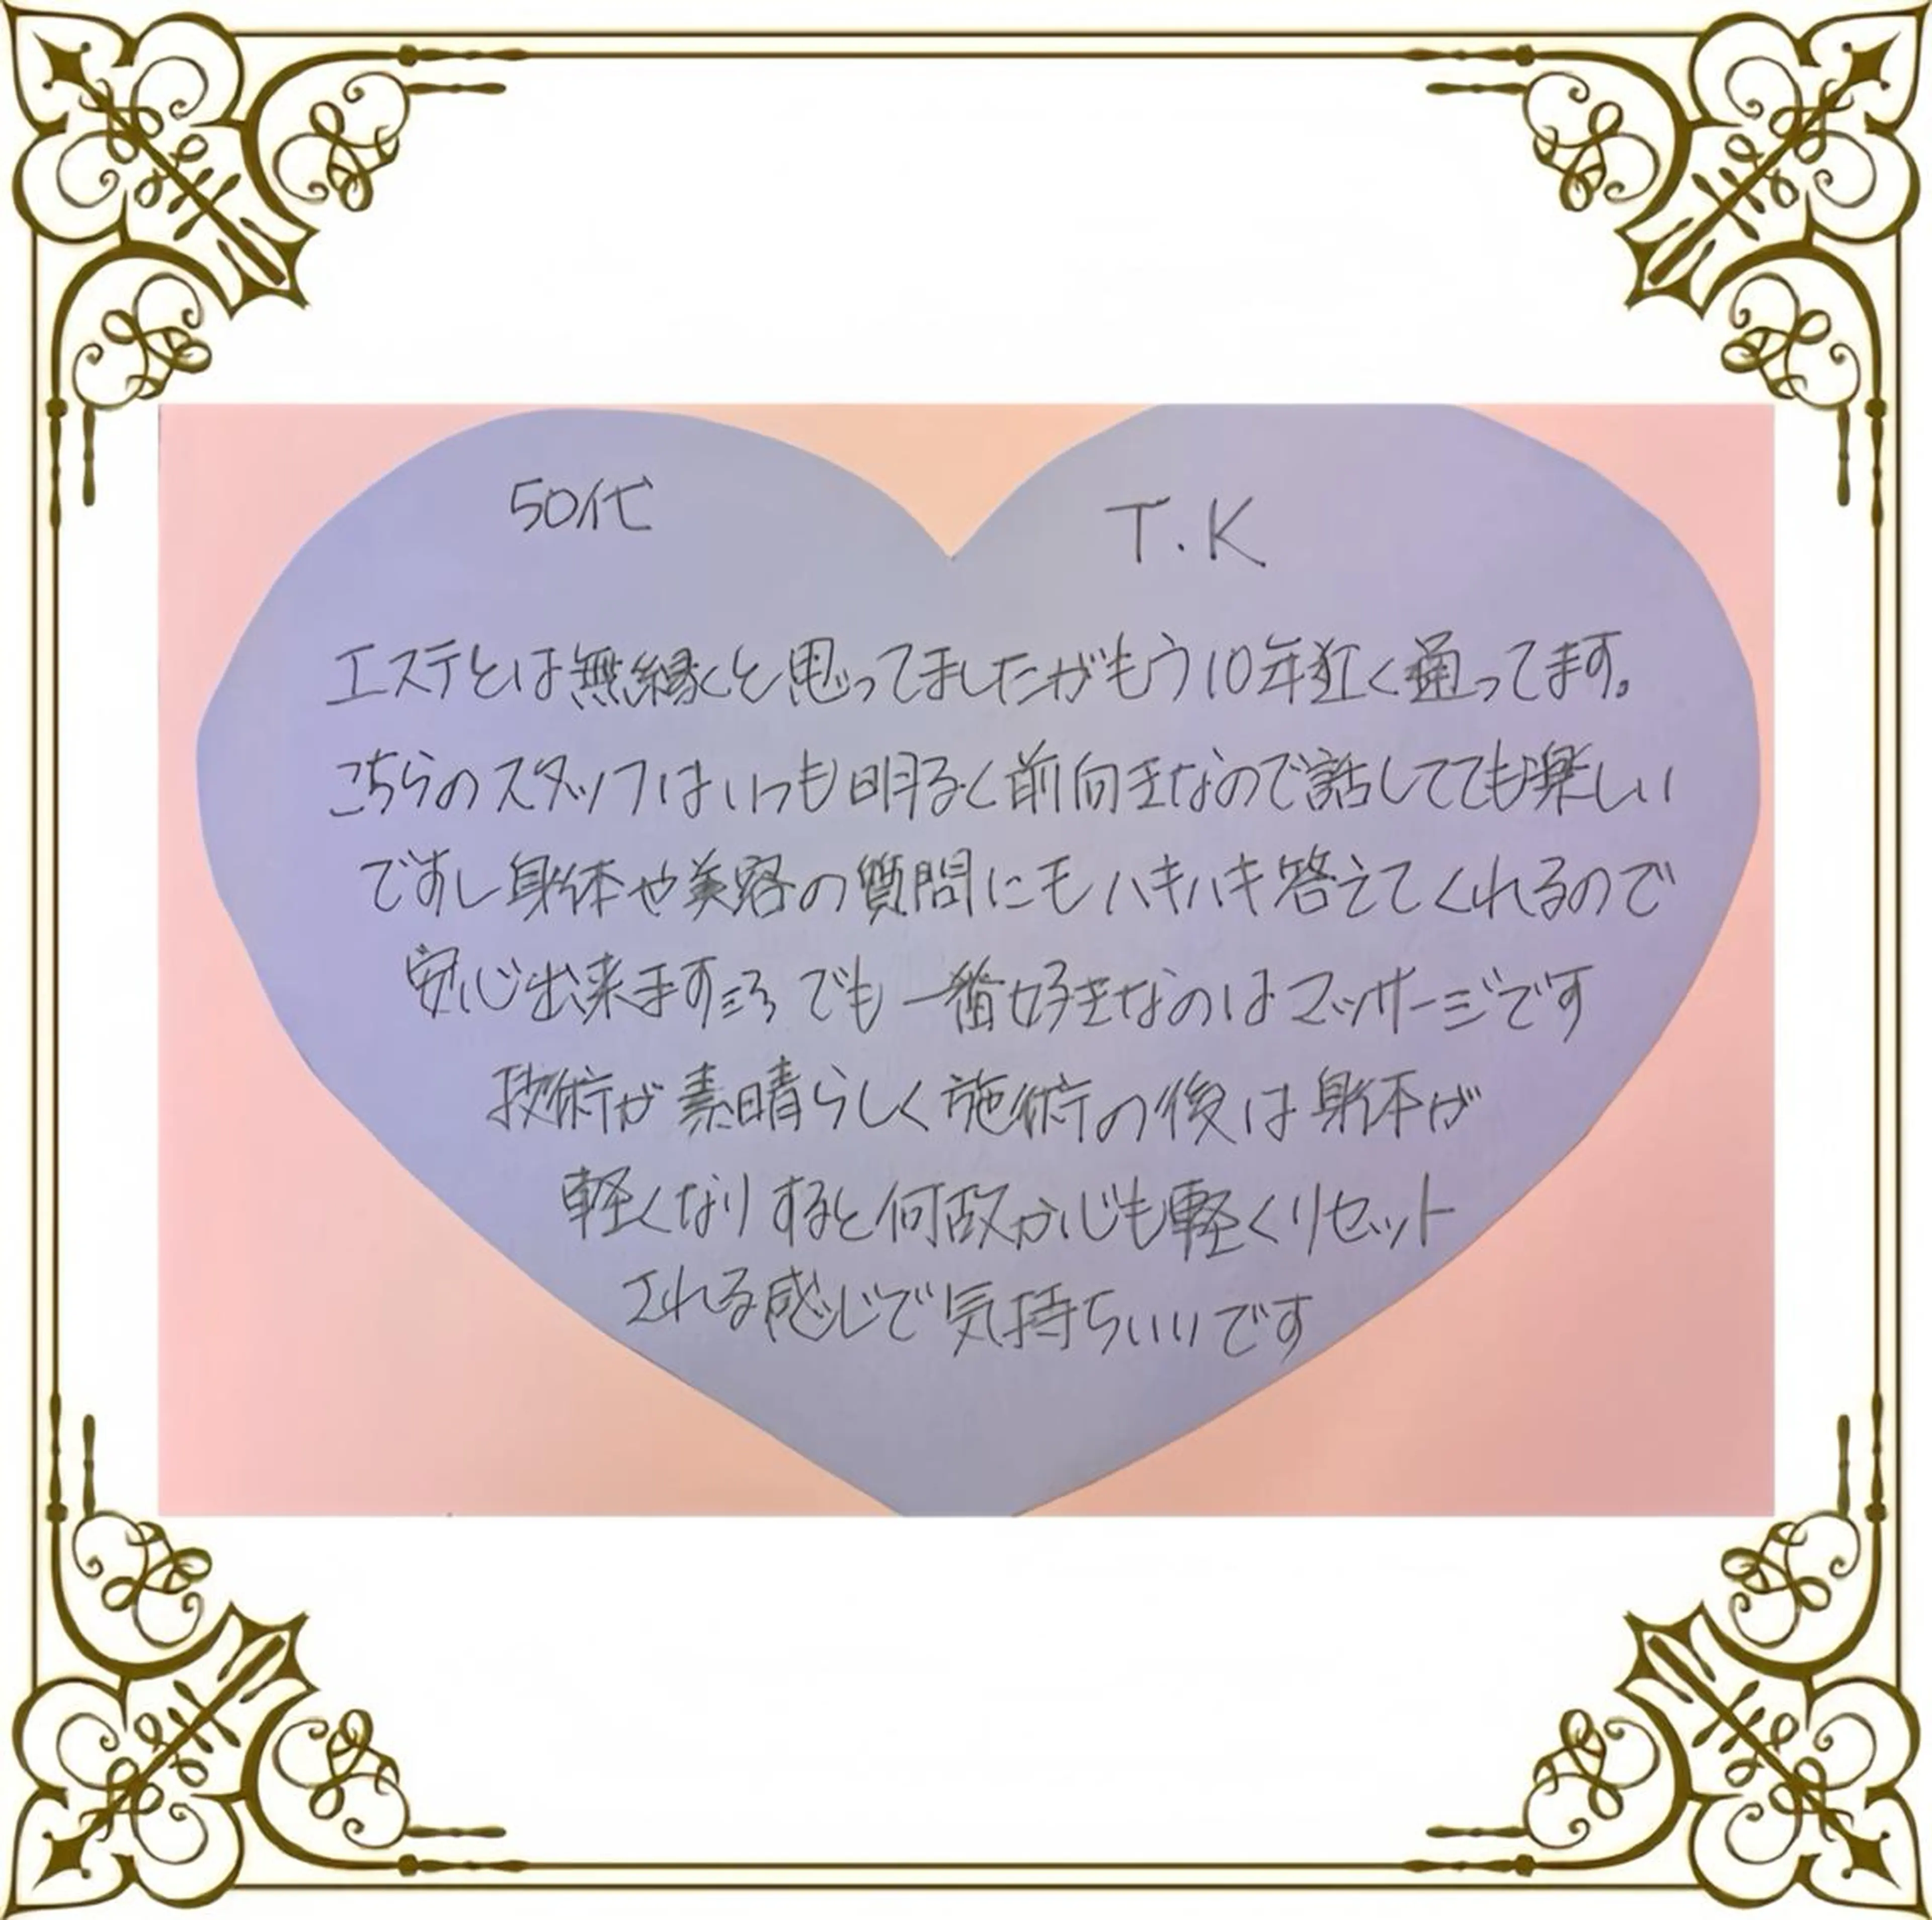 50代
T.K
エステとは無縁くと思ってましたがもう10年近く通ってます。
こちらのスタッフはいつも明るく前向きなので話してても楽しい
ですし身体や美容の質問にもハキハキ答えてくれるので
安心出来ます でも一番好きなのはマッサージです
技術が素晴らしく施術の後は身体が
軽くなりすると何故か心も軽くリセット
される感じで気持ちいいです